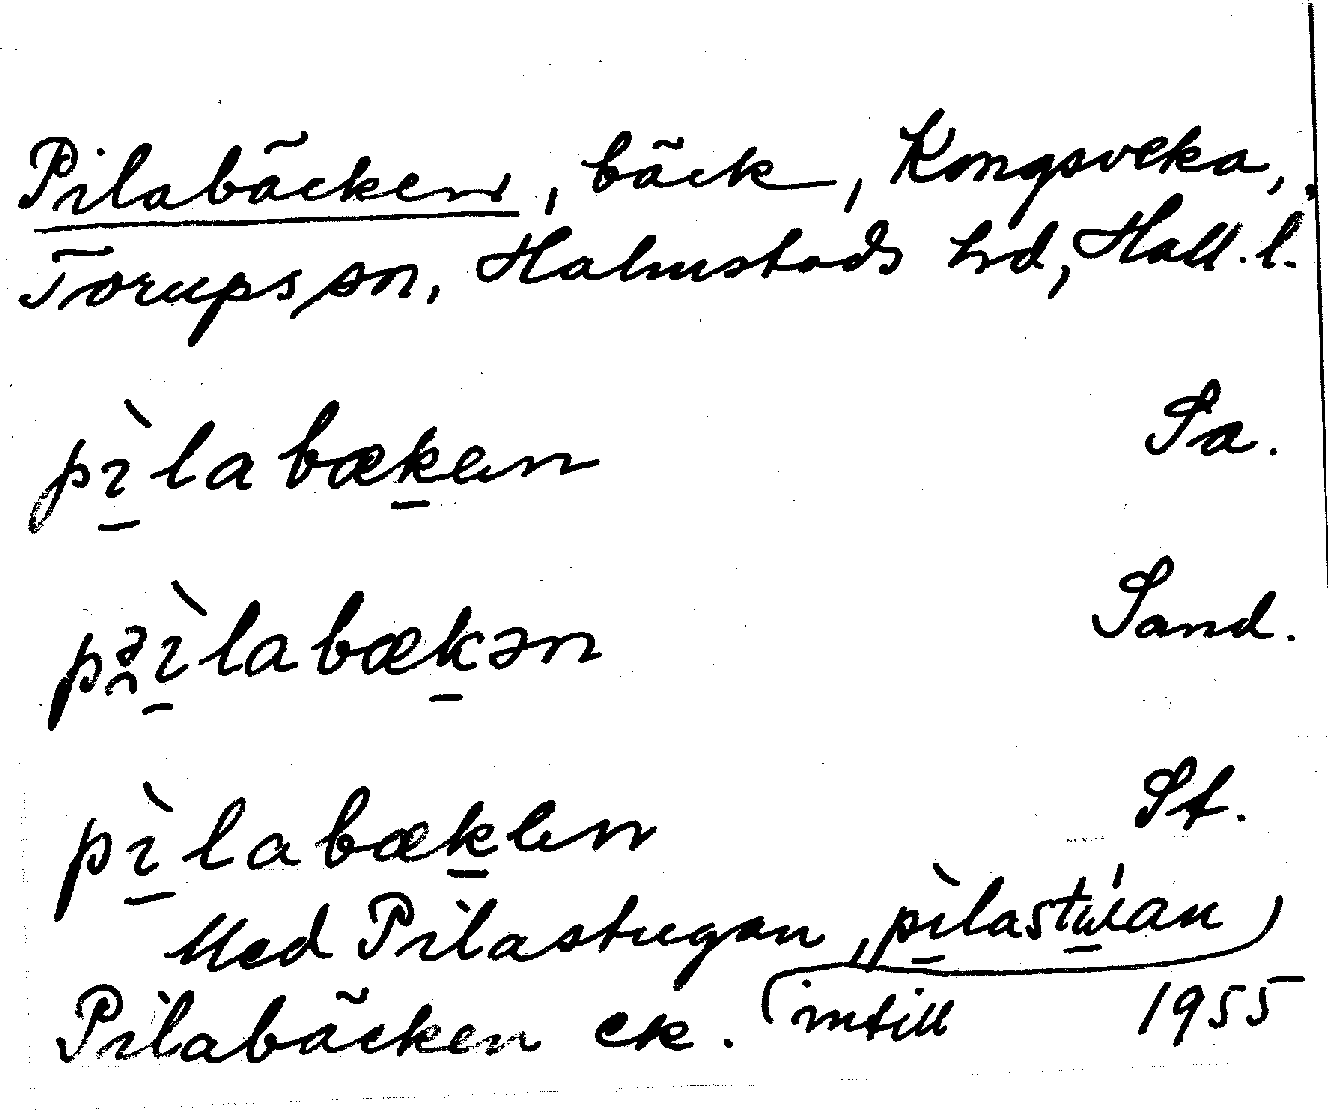 Pilabäcken, bäck, Kongsveka,
Torups sn, Halmstads hd, Hall. l.
pìlabæken Sa.
pəìlabækən Sand.
pìlabæken St.
Med Pilastugan, pìlastúan
Pilabäcken ek. (intill 1955